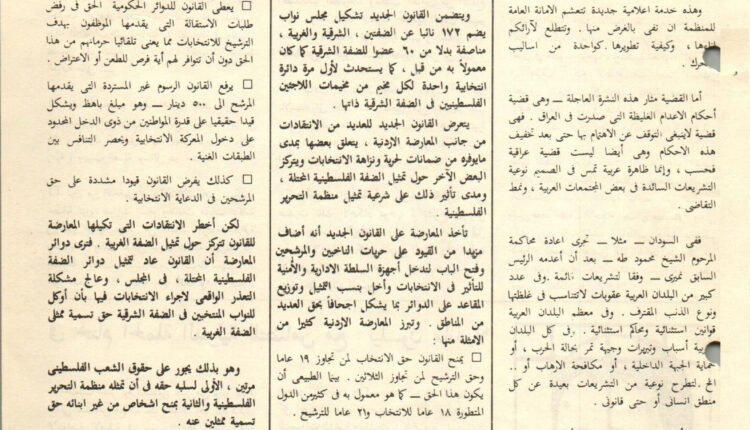 وهذه خدمة اعلامية جديدة تتعشم الامانة العامة
للمنظمة ان تفى بالغرض منها . وتتطلع لآرائكم
وكيفية تطويرها . كواحدة من اساليب
أما القضية مثار هذه النشرة العاجلة ــ وهى قضية
أحكام الاعدام الغليظة التى صدرت فى العراق . فهى
قضية لاينبغى التوقف عن الاهتمام بها حتى بعد تخفيف
هذه الاحكام وهى أيضا ليست قضية عراقية
فحسب ، وإنما ظاهرة عربية تمس فى الصميم نوعية
التشريعات السائدة فى بعض المجتمعات العربية ، ونمط
التقاضى .
ففى السودان ــ مثلا ــ تجرى اعادة محاكمة
المرحوم الشيخ محمود طه ــ بعد أن أعدمه الرئيس
السابق نميرى ــ وفقا لتشريعات قائمة . وفى عدد
كبير من البلدان العربية عقوبات لاتتناسب فى غلظتها
ونوع الذنب المقترف . وفى معظم البلدان العربية
قوانين استثنائية ومحاكم استثنائية . رفى كل البلدان
أسباب وتبريرات وجيهة تمر بحالة الحرب ، أو
حماية الجبهة الداخلية ، أو مكافحة الارهاب أو ..
الخ . لتطرح نوعية من التشريعات بعيدة عن كل
منطق انسانى أو حتى قانونى .
ويتضمن القانون الجديد تشكيل مجلس نواب
يضم ١٧٢ نائبا عن الضفتين ، الشرقية والغربية ،
مناصفة بدلا من ٦٠ عضوا للضفة الشرقية كما كان
معمولاً به من قبل ، كما يستحدث لأول مرة دائرة
انتخابية واحدة لكل مخيم من مخيمات اللاجئين
الفلسطينيين فى الضفة الشرقية ذاتها .
يتعرض القانون الجديد للعديد من الانتقادات
من جانب المعارضة الاردنية ، يتعلق بعضها بمدى
مايوفره من ضمانات لحرية ونزاهة الانتخابات ويتركز
البعض الآخر حول تمثيل الضفة الفلسطينية المحتلة ،
ومدى تأثير ذلك على شرعية تمثيل منظمة التحرير
الفلسطينية .
تأخذ المعارضة على القانون الجديد أنه أضاف
مزيدا من القيود على حريات الناخبين والمرشحين
وفتح الباب لتدخل أجهزة السلطة الادارية والأمنية
للتأثير فى الانتخابات وأخل بنسب التمثيل وتوزيع
المقاعد على الدوائر بما يشكل اجحافاً بحق العديد
من المناطق . وتبرز المعارضة الاردنية كثيرا من
الامثلة منها :
□ يمنح القانون حق الانتخاب لمن تجاوز ١٩ عاما
وحق الترشيح لمن تجاوز الثلاثين . بينما الطبيعى أن
يكون هذا الحق ــ كما هو معمول به فى كثيرمن الدول
المتطورة ١٨ عاما للانتخاب و٢١ عاما للترشيح .
□ يعطى القانون للدوائر الحكومية الحق فى رفض
طلبات الاستقالة التى يقدمها الموظفون بهدف
الترشيح للانتخابات مما يعنى تلقائيا حرمانهم من هذا
الحق دون أن تتوافر لهم أية فرص للطعن أو الاعتراض .
□ يرفع القانون الرسوم غير المستردة التى يقدمها
المرشح الى ٥٠٠ دينار ــ وهو مبلغ باهظ ويشكل
قيدا حقيقيا على قدرة المواطنين من ذوى الدخل المحدود
على دخول المعركة الانتخابية ويحصر التنافس بين
الطبقات الغنية .
□ كذلك يفرض القانون قيودا مشددة على حق
المرشحين فى الدعاية الانتخابية .
لكن أخطر الانتقادات التى تكيلها المعارضة
للقانون تتركز حول تمثيل الضفة الغربية . فترى دوائر
المعارضة أن القانون عاد لتمثيل دوائر الضفة
الفلسطينية المحتلة ، فى المجلس ، وعالج مشكلة
التعذر الواقعى لاجراء الانتخابات فيها بأن أوكل
للنواب المنتخبين فى الضفة الشرقية حق تسمية ممثلى
الضفة الغربية .
وهو بذلك يجور على حقوق الشعب الفلسطينى
مرتين ، الأولى لسلبه حقه فى أن تمثله منظمة التحرير
الفلسطينية والثانية بمنح اشخاص من غير ابنائه حق
تسمية ممثلين عنه .